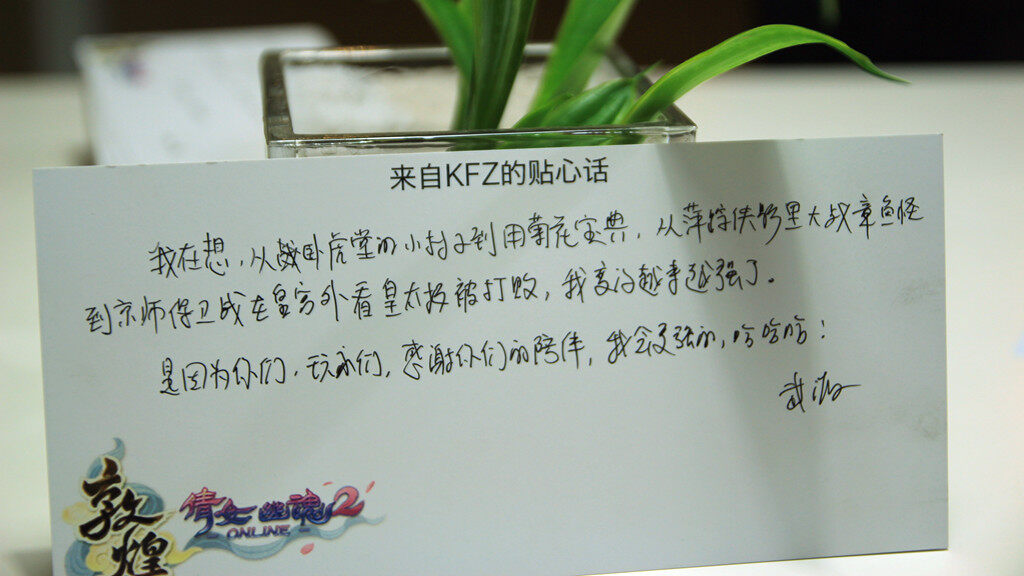 来自KFZ的贴心话
我在想,从战卧虎堂的小村子到用菊花宝典,从萍踪侠影里大战章鱼怪
到京师保卫战在皇宫外看皇太极被打败,我变得越来越强了。
是因为你们,玩家们,感谢你们的陪伴,我会更强的,哈哈哈!
敦煌
倩女幽魂2
ONLINE